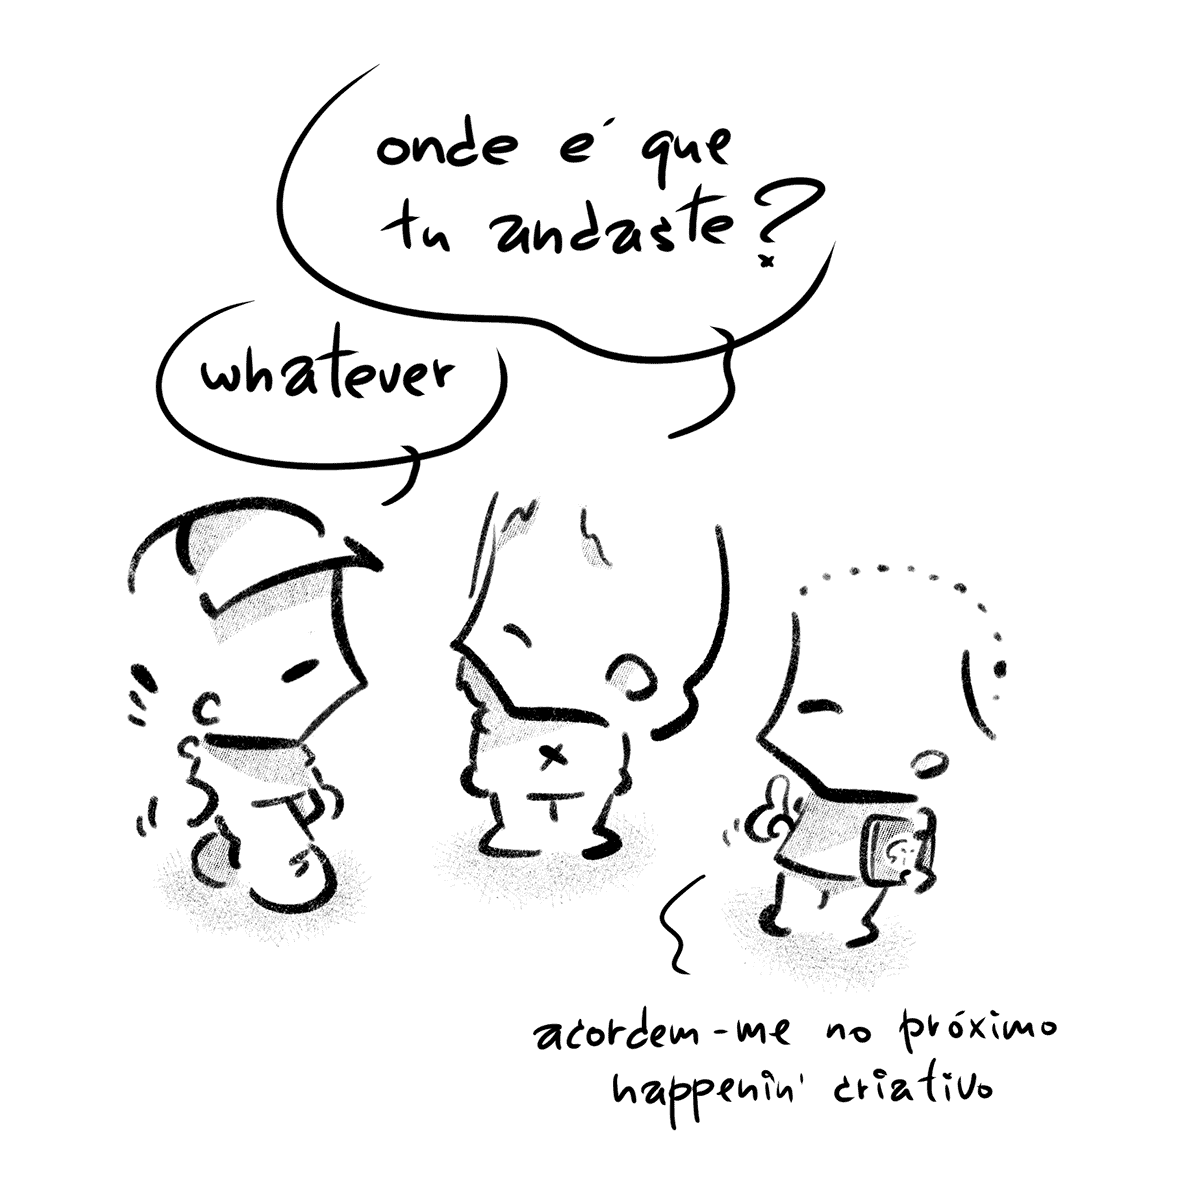 onde é que
tu andaste?
whatever
acordem-me no próximo
happenin' criativo